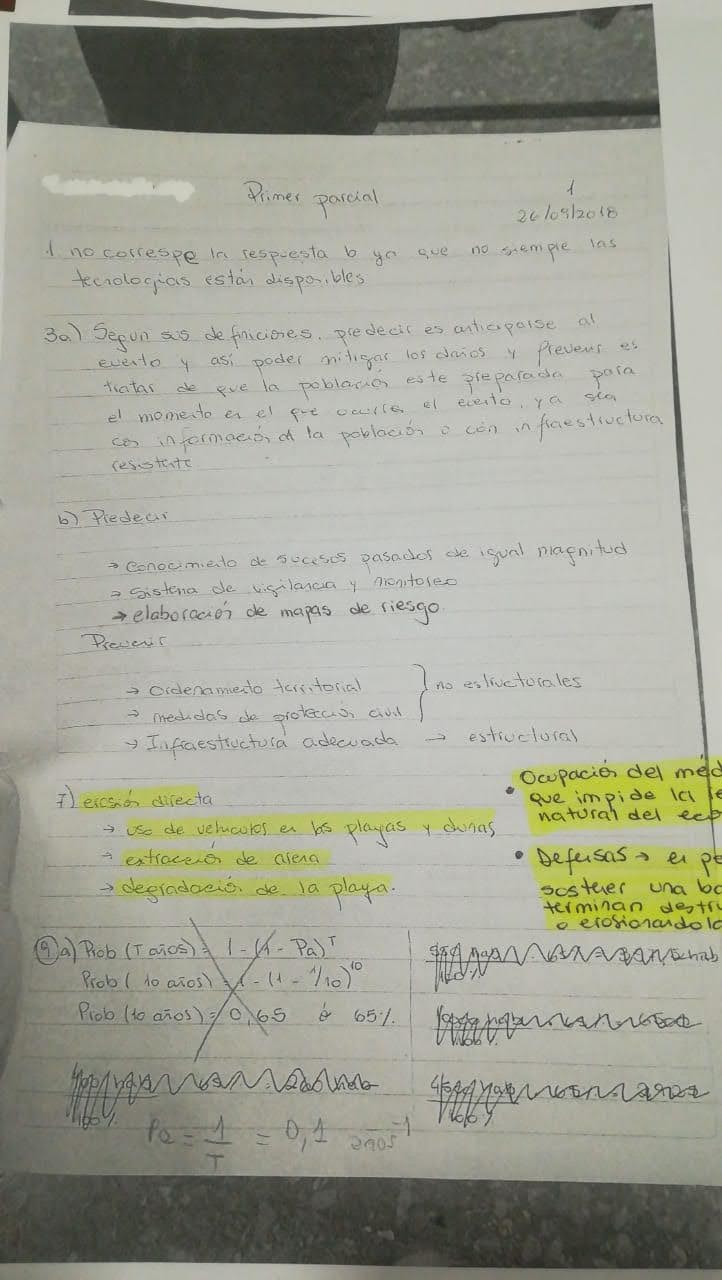 Primer parcial
1
26/09/2018
1. no correspe la respuesta b ya que no siempre las
tecnologías están disponibles
3a) Segun sus definiciones, predecir es anticiparse al
evento y así poder mitigar los daños y Prevenir es
tratar de que la población este preparada para
el momento en el que ocurra el evento, ya sea
con información a la población o con infraestructura
resistente
b) Predecir
→ conocimiento de sucesos pasados de igual magnitud
→ sistema de vigilancia y monitoreo
→ elaboración de mapas de riesgo.
Prevenir
→ Ordenamiento territorial
→ medidas de protección civil
} no estructurales
→ Infraestructura adecuada → estructural
7) erosión directa
→ uso de vehículos en las playas y dunas
→ extracción de arena
→ degradación de la playa.
• Ocupación del méd
que impide la
natural del eco
• Defensas → en pe
sostener una ba
terminan destru
o erosionando lo
9 a) Prob (T años) = 1 - (1 - Pa)^T
Prob (10 años) = 1 - (1 - 1/10)^10
Prob (10 años) = 0,65 ó 65%
100%
Pa = 1/T = 0,1 años^-1